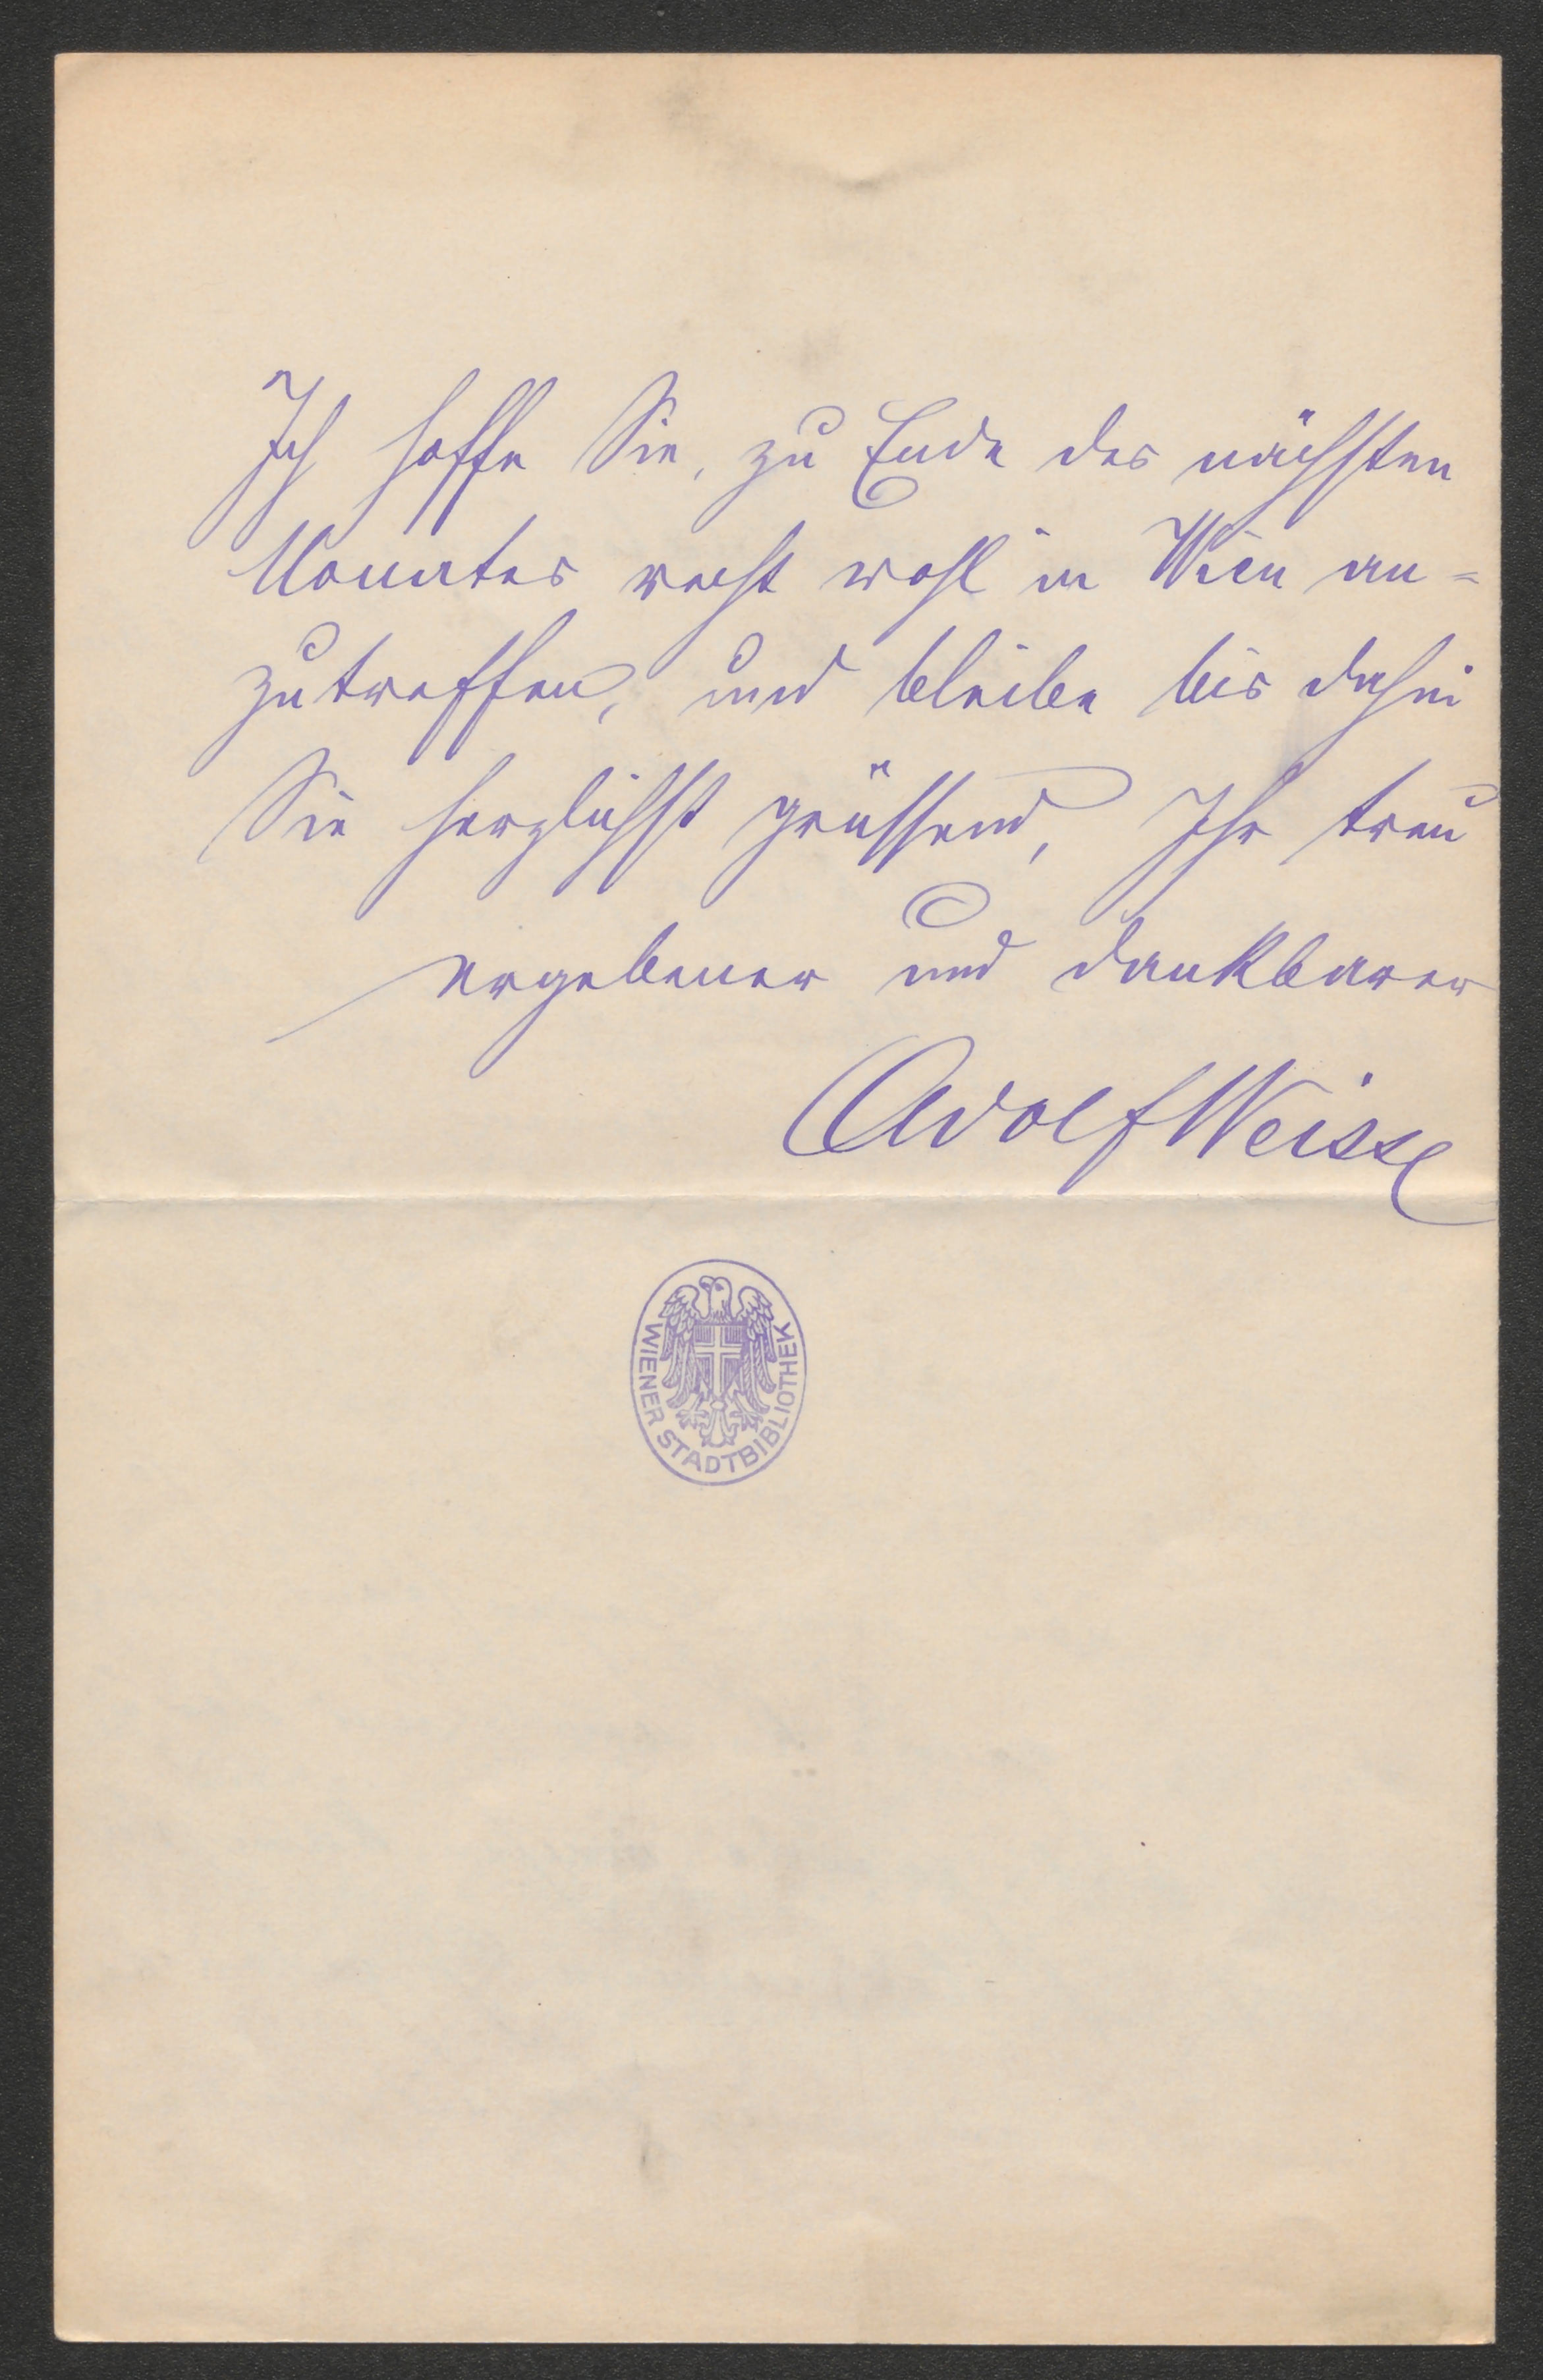 Ich hoffe Sie, zu Ende des nächsten
Monates recht wohl in Wien an=
zutreffen, und bleibe bis dahin
Sie herzlichst grüssend, Ihr treu
ergebener und dankbarer
Adolf Weisse
WIENER STADTBIBLIOTHEK